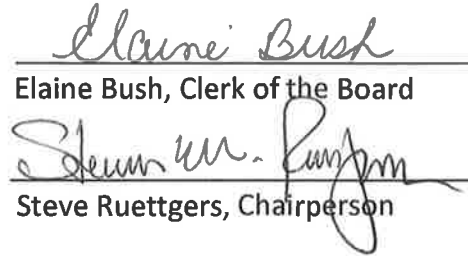 Elaine Bush
Elaine Bush, Clerk of the Board
Steven M.
Steve Ruettgers, Chairperson